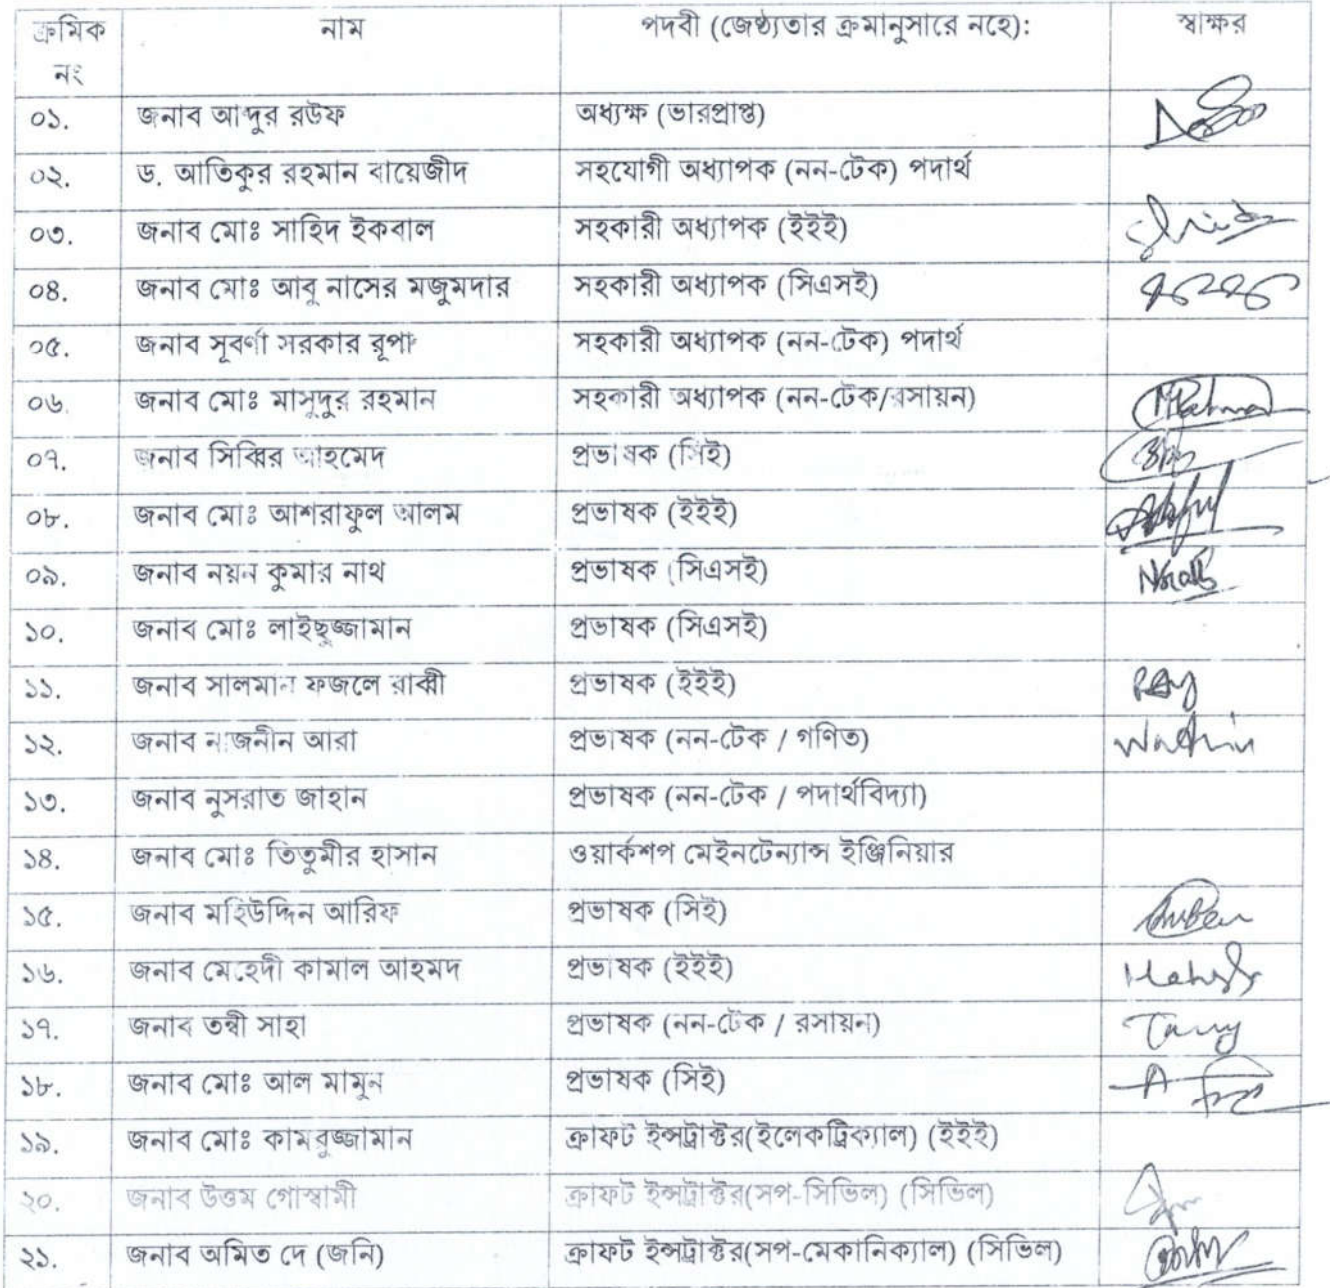 ক্রমিক নং নাম পদবী (জেষ্ঠ্যতার ক্রমানুসারে নহে): স্বাক্ষর
০১. জনাব আব্দুর রউফ অধ্যক্ষ (ভারপ্রাপ্ত)
০২. ড. আতিকুর রহমান বায়েজীদ সহযোগী অধ্যাপক (নন-টেক) পদার্থ
০৩. জনাব মোঃ সাহিদ ইকবাল সহকারী অধ্যাপক (ইইই)
০৪. জনাব মোঃ আবু নাসের মজুমদার সহকারী অধ্যাপক (সিএসই)
০৫. জনাব সূবর্ণা সরকার রূপা সহকারী অধ্যাপক (নন-টেক) পদার্থ
০৬. জনাব মোঃ মাসুদুর রহমান সহকারী অধ্যাপক (নন-টেক/রসায়ন)
০৭. জনাব সিব্বির আহমেদ প্রভাষক (সিই)
০৮. জনাব মোঃ আশরাফুল আলম প্রভাষক (ইইই)
০৯. জনাব নয়ন কুমার নাথ প্রভাষক (সিএসই)
১০. জনাব মোঃ লাইছুজ্জামান প্রভাষক (সিএসই)
১১. জনাব সালমান ফজলে রাব্বী প্রভাষক (ইইই)
১২. জনাব নাজনীন আরা প্রভাষক (নন-টেক / গণিত)
১৩. জনাব নুসরাত জাহান প্রভাষক (নন-টেক / পদার্থবিদ্যা)
১৪. জনাব মোঃ তিতুমীর হাসান ওয়ার্কশপ মেইনটেন্যান্স ইঞ্জিনিয়ার
১৫. জনাব মহিউদ্দিন আরিফ প্রভাষক (সিই)
১৬. জনাব মেহেদী কামাল আহমদ প্রভাষক (ইইই)
১৭. জনাব তন্বী সাহা প্রভাষক (নন-টেক / রসায়ন)
১৮. জনাব মোঃ আল মামুন প্রভাষক (সিই)
১৯. জনাব মোঃ কামরুজ্জামান ক্রাফট ইন্সট্রাক্টর(ইলেকট্রিক্যাল) (ইইই)
২০. জনাব উত্তম গোস্বামী ক্রাফট ইন্সট্রাক্টর(সপ-সিভিল) (সিভিল)
২১. জনাব অমিত দে (জনি) ক্রাফট ইন্সট্রাক্টর(সপ-মেকানিক্যাল) (সিভিল)